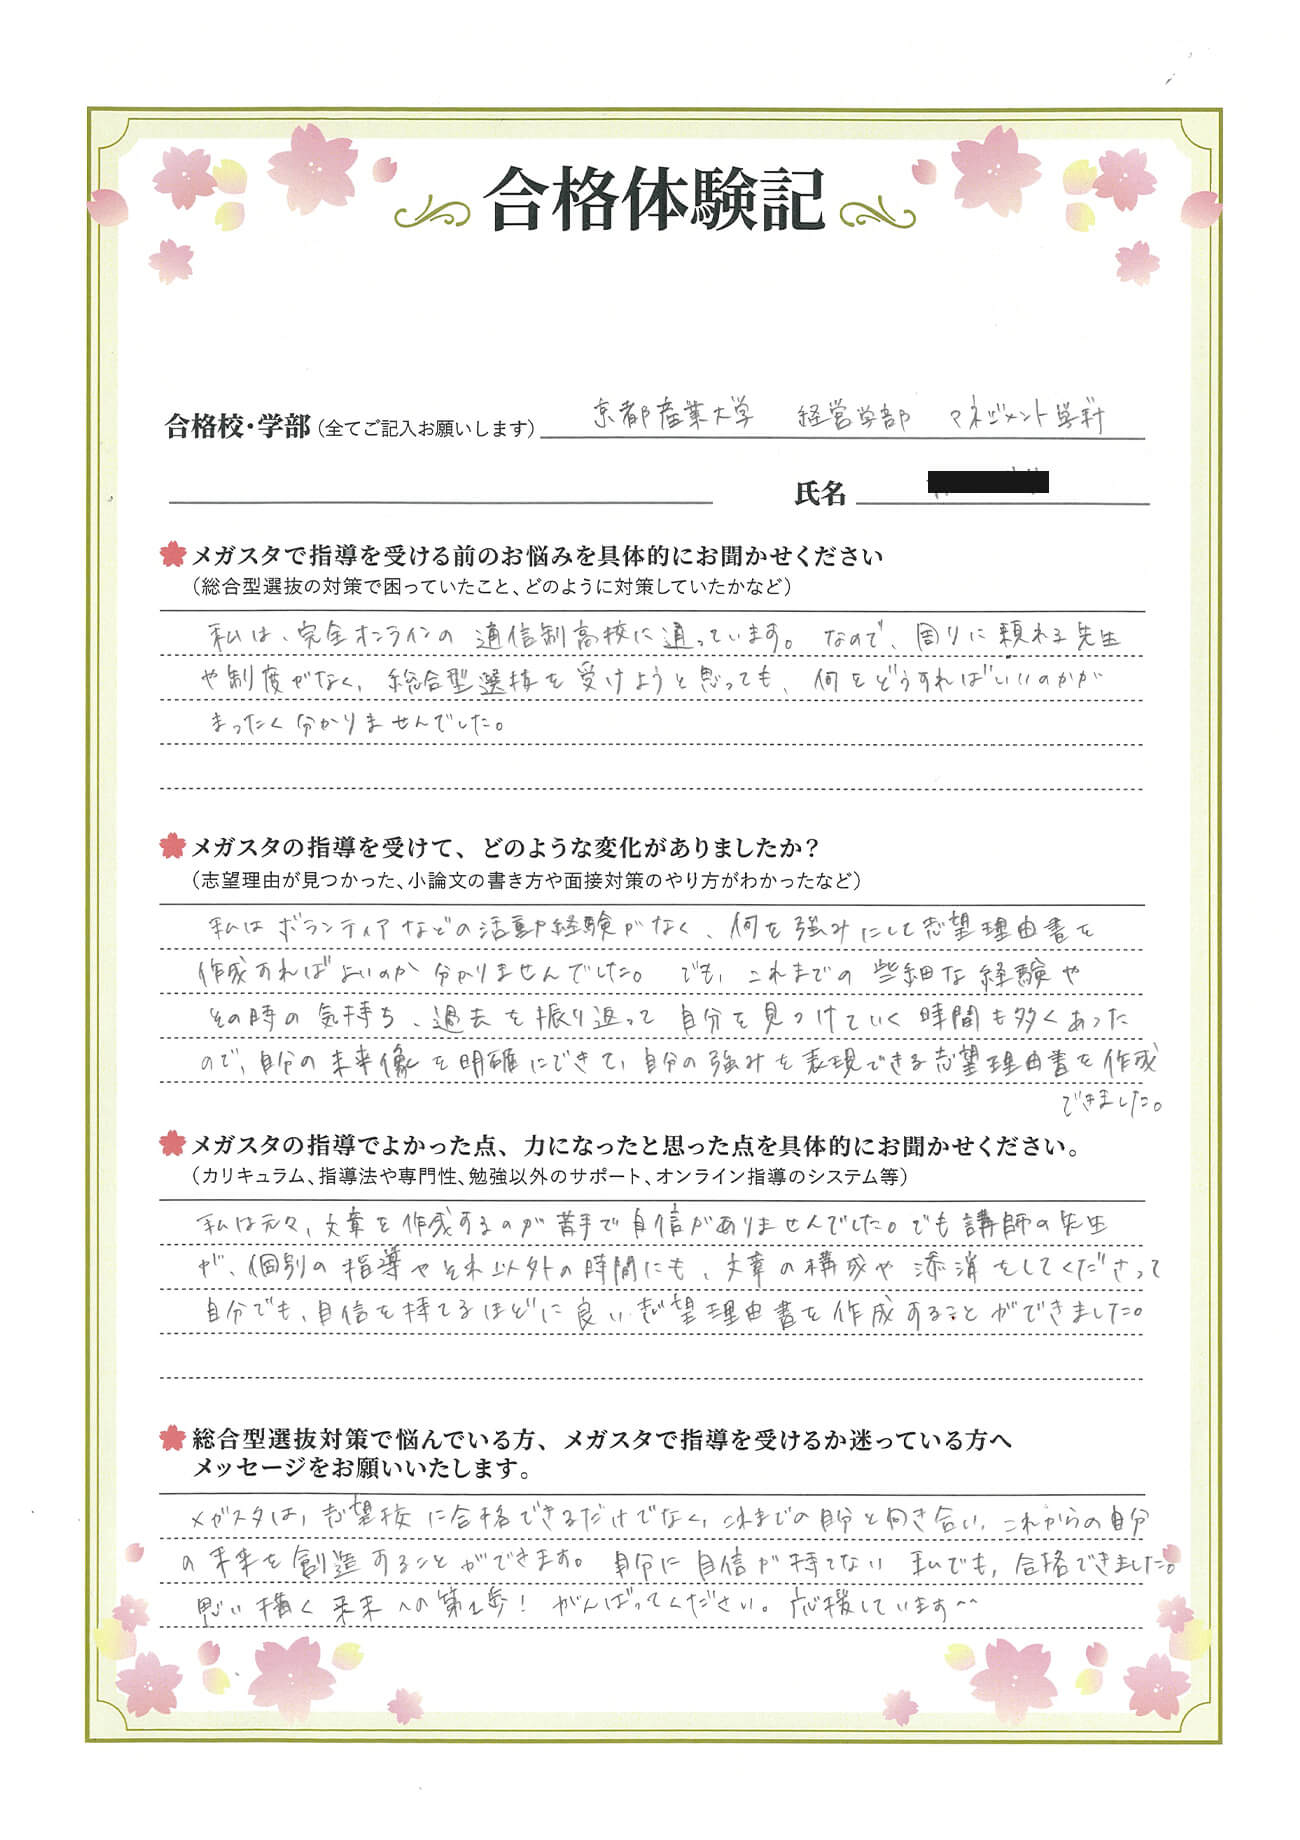 合格体験記
合格校・学部（全てご記入お願いします） 京都産業大学 経営学部 マネジメント学科
氏名
メガスタで指導を受ける前のお悩みを具体的にお聞かせください
（総合型選抜の対策で困っていたこと、どのように対策していたかなど）
私は、完全オンラインの通信制高校に通っています。なので、周りに頼れる先生
や制度がなく、総合型選抜を受けようと思っても、何をどうすればいいのかが
まったく分かりませんでした。
メガスタの指導を受けて、どのような変化がありましたか？
（志望理由が見つかった、小論文の書き方や面接対策のやり方がわかったなど）
私はボランティアなどの活動や経験がなく、何を強みにして志望理由書を
作成すればよいのか分かりませんでした。でも、これまでの些細な経験や
その時の気持ち、過去を振り返って自分を見つけていく時間も多くあった
ので、自分の未来像を明確にできて、自分の強みを表現できる志望理由書を作成
できました。
メガスタの指導でよかった点、力になったと思った点を具体的にお聞かせください。
（カリキュラム、指導法や専門性、勉強以外のサポート、オンライン指導のシステム等）
私は元々、文章を作成するのが苦手で自信がありませんでした。でも講師の先生
が、個別の指導やそれ以外の時間にも、文章の構成や添削をしてくださって
自分でも、自信を持てるほどに良い志望理由書を作成することができました。
総合型選抜対策で悩んでいる方、メガスタで指導を受けるか迷っている方へ
メッセージをお願いいたします。
メガスタは、志望校に合格できるだけでなく、これまでの自分と向き合い、これからの自分
の未来を創造することができます。自分に自信が持てない私でも、合格できました。
思い描く未来への第1歩！がんばってください。応援しています^^